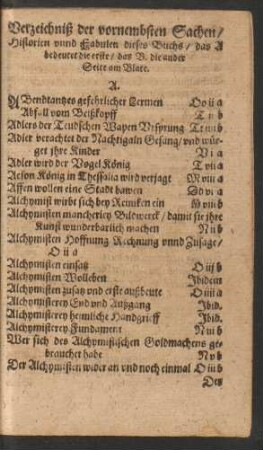 Verzeichniß der vornembsten Sachen/
Historien vnnd Fabulen dieses Buchs/ das A
bedeutet die erste/ das B. die ander
Seite am Blate.
A.
ABendtantzes gefehrlicher Lermen Oo ii a
Abfall vom Beißkopff T v b
Adlers der Teudschen Wapen Vrsprung
Adler verachtet der Nachtigaln Gesang/ vnd wür-
get jhre Kinder V i a
Adler wird der Vogel König T vii a
Aeson König in Thessalia wird verjagt
Affen wollen eine Stadt bawen Dd vi a
Alchymist wirbt sich bey Reiniken ein
Alchymisten mancherley Bildwerck/ damit sie jhre
Kunst wunderbarlich machen N ii b
Alchymisten Hoffnung Rechnung vnnd Zusage/
O ii a
Alchymisten einsatz O iii b
Alchymisten Wolleben Ibidem
Alchymisten zusatz vnd erste außbeute O iiii a
Alchymisterey End vnd Außgang Ibid.
Alchymisterey heimliche Handgrieff Ibid.
Alchymisterey Fundament N ii b
Wer sich des Alchymistischen Goldmachens ge-
brauchet habe N v b
Der Alchymisten wider an vnd noch einmal O iii b
Des